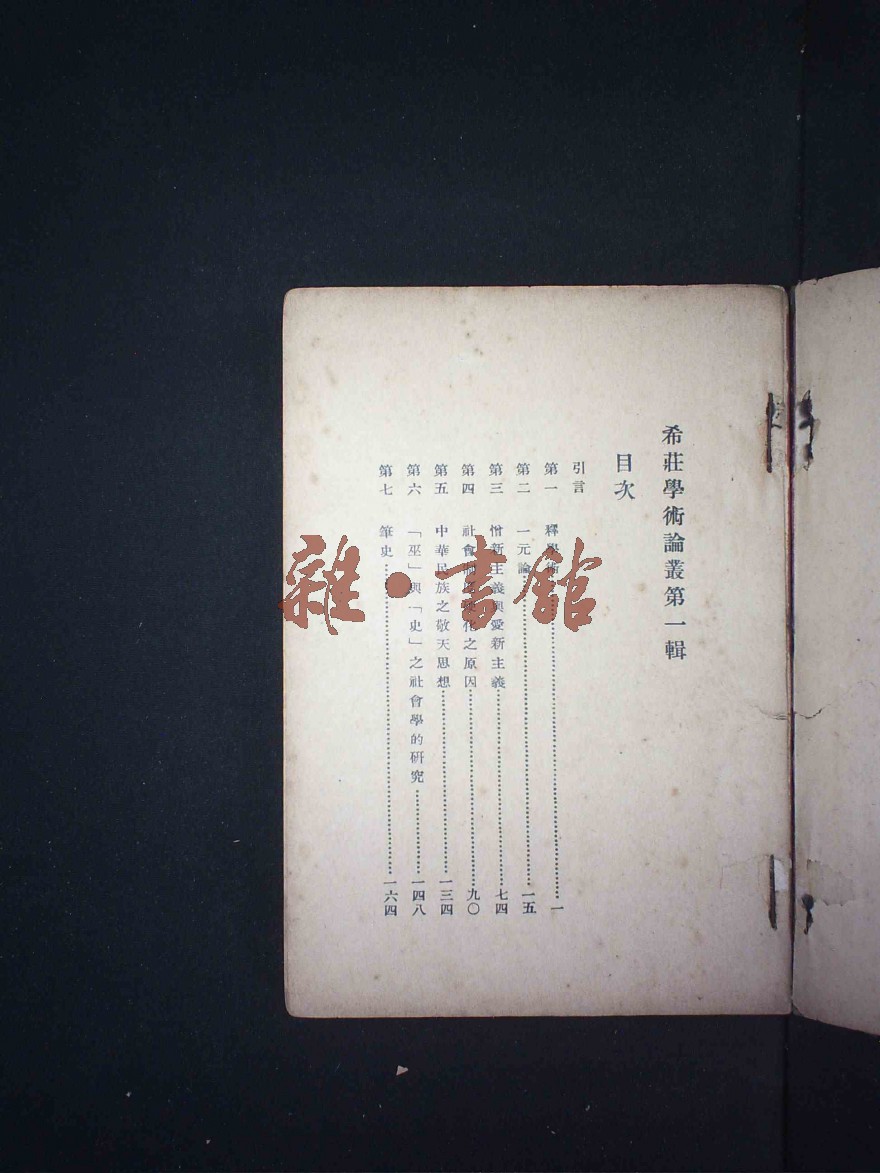 希莊學術論叢第一輯
目次
引言
第一 釋學術……一
第二 一元論……一五
第三 憎新主義與愛新主義……七四
第四 社會變化之原因……九〇
第五 中華民族之敬天思想……一三四
第六 「巫」與「史」之社會學的研究……一四八
第七 筆史……一六四
雜·書館